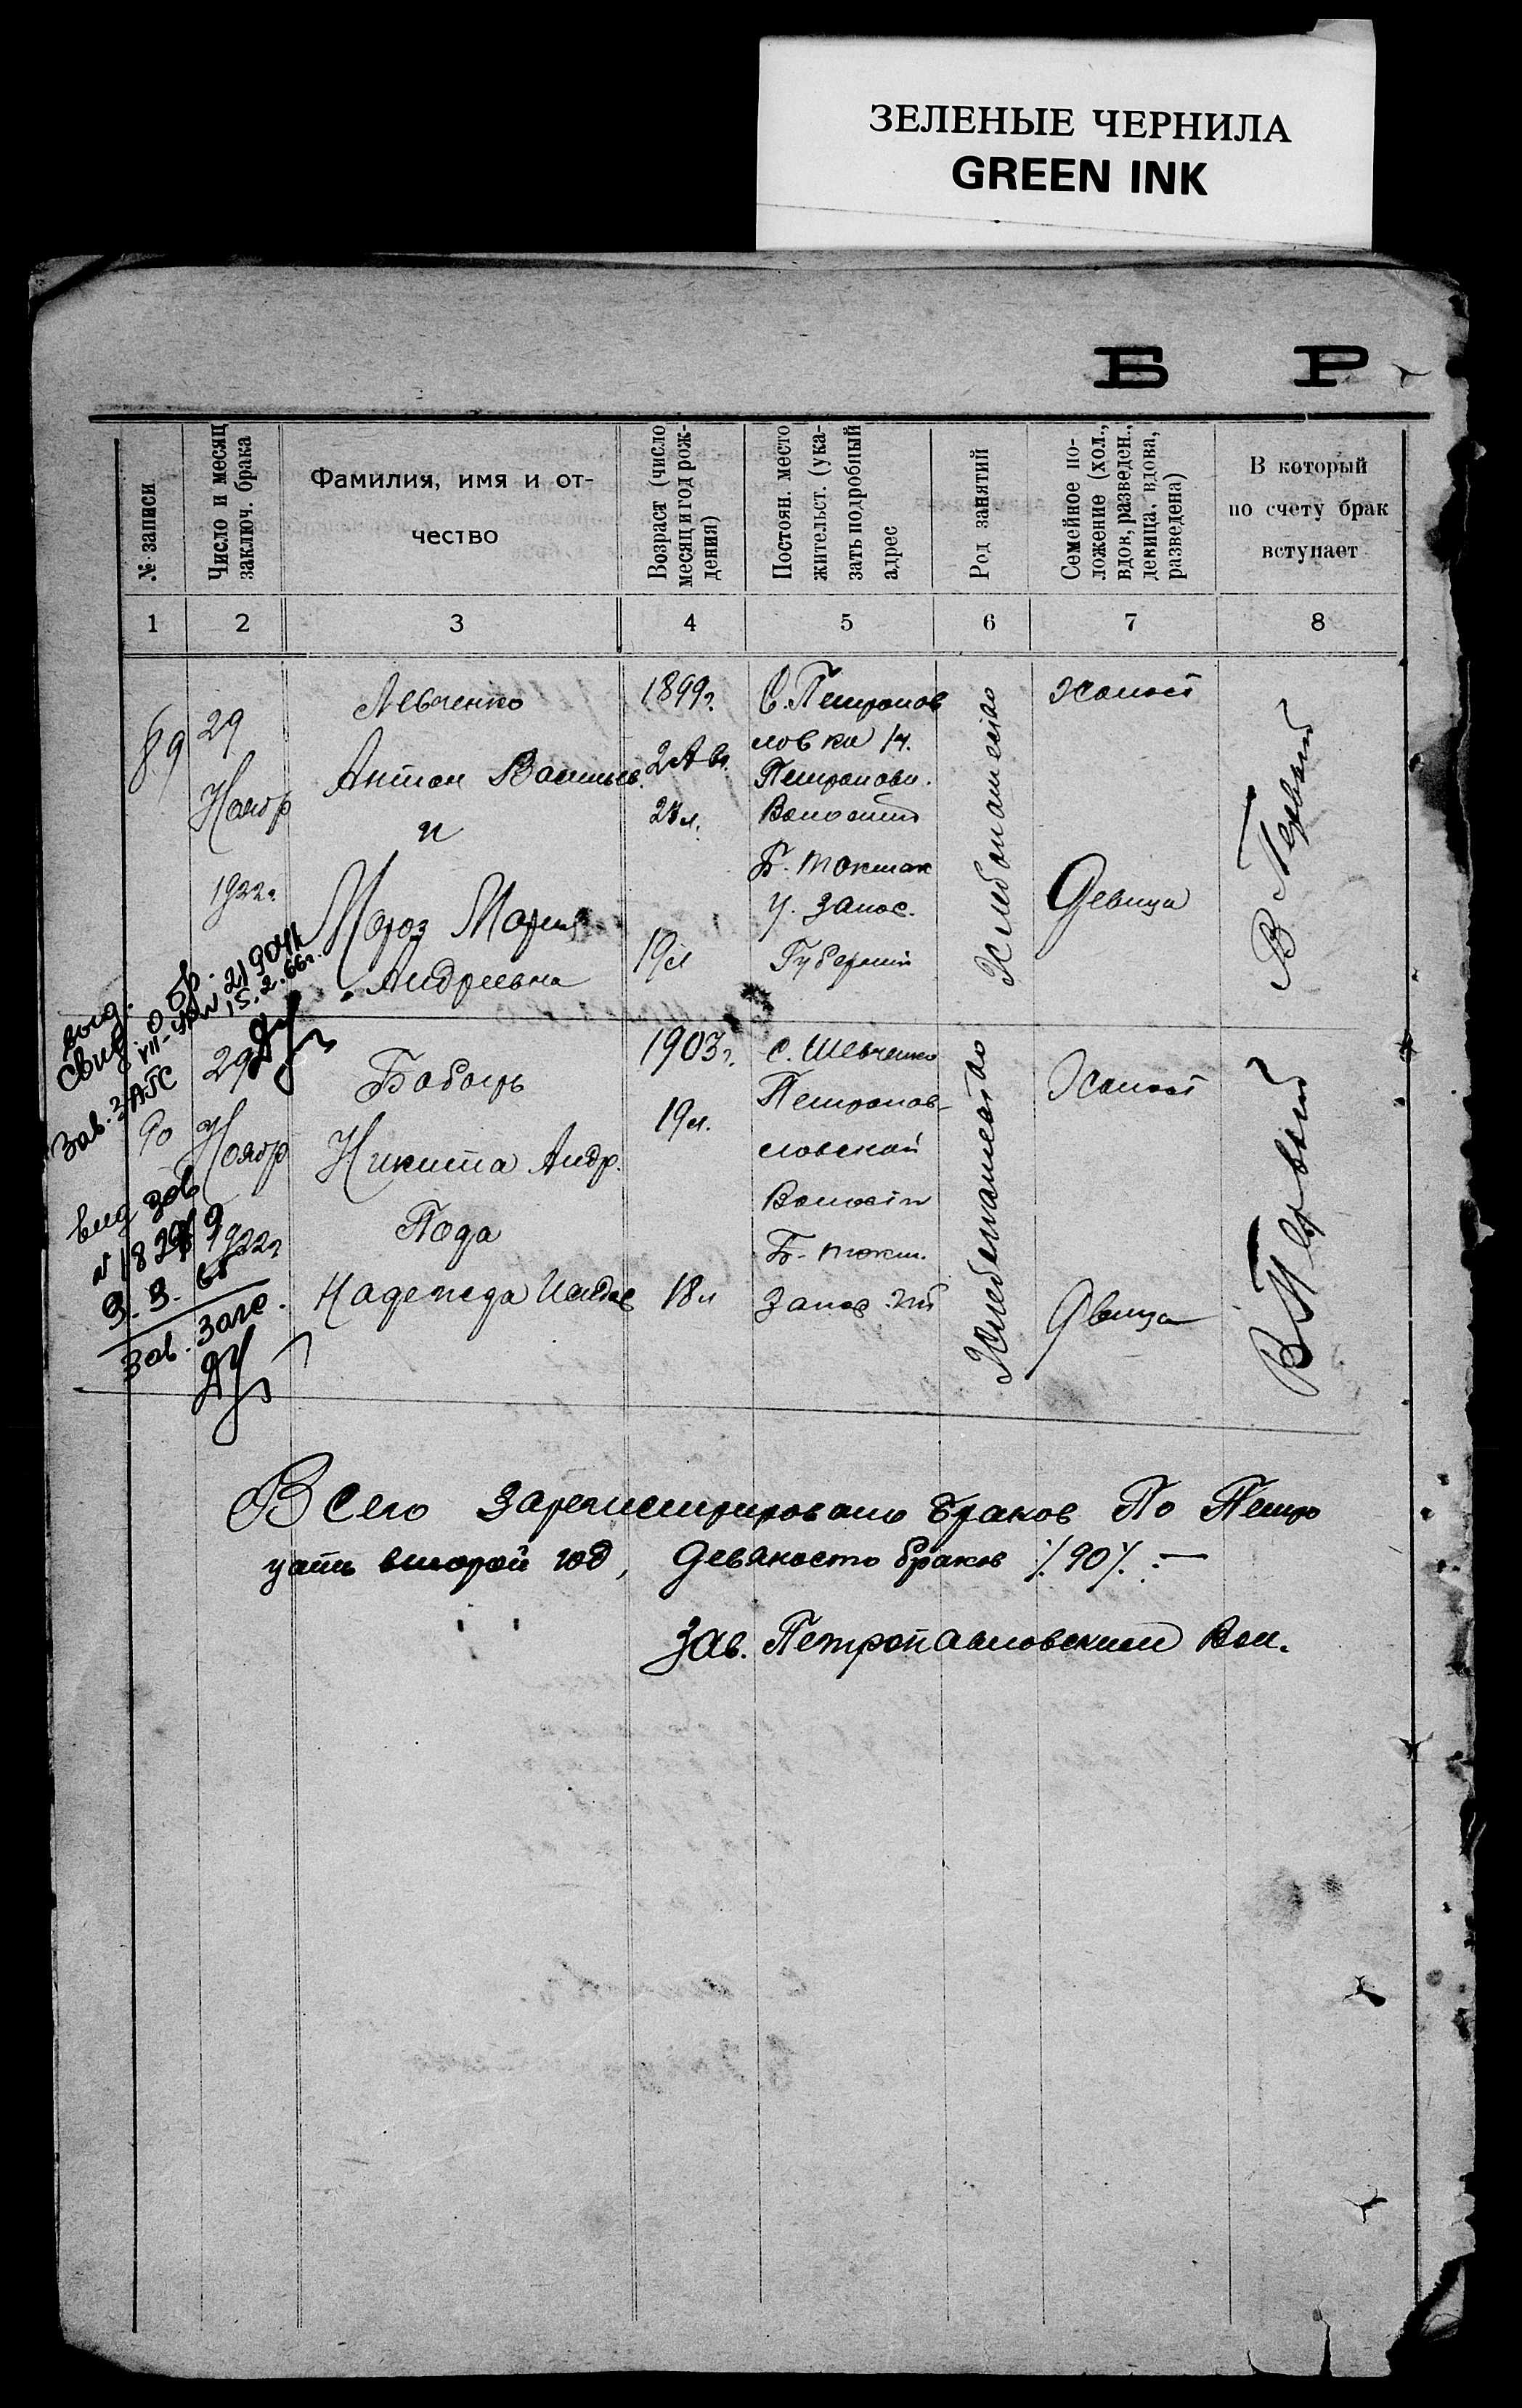 ЗЕЛЕНЫЕ ЧЕРНИЛА
GREEN INK
Б Р
№ записи
Число и месяц
заключ. брака
Фамилия, имя и от-
чество
Возраст (число
месяц и год рож-
дения)
Постоян. место
жительст. (ука-
зать подробный
адрес
Род занятий
Семейное по-
ложение (хол.,
вдов, разведен.,
девица, вдова,
разведена)
В который
по счету брак
вступает
1 2 3 4 5 6 7 8
89
29
Ноябр
1922г.
Левченко
Антон Васильев.
и
Мороз Мария
Андреевна
1899г.
2 Ав.
19л
С. Петропов
ловка
Петропавл.
Волости
Б. Токмак
у. Запос.
Губернии
Хлебопашество
Холост
Девица
В Первый
выд.
свид. о бр.
15.2.66г.
Зав. ЗАГС
90
29
Ноябр
1922г
Бабырь
Никита Андр.
Пода
Надежда
1903г.
19л.
18л
с. Шевченко
Петропав-
ловской
Волости
Б. токм.
Запос.
Хлебопашество
Холост
Двица
В Первый
3.3.65
Зав. Загс.
Всего зарегистрировано браков По Петро
цать второй год, Девяносто браков /.90/. —
Зав. Петропавловским Вол.